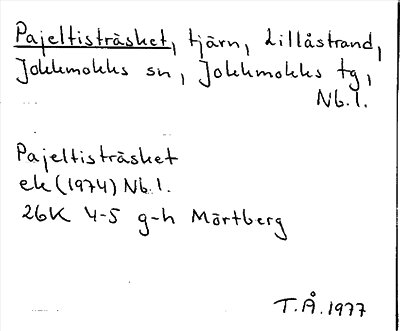 Pajeltisträsket, tjärn, Lillåstrand,
Jokkmokks sn, Jokkmokks tg,
Nb. l.
Pajeltisträsket
ek (1974) Nb. l.
26K 4-5 g-h Mörtberg
T.Å. 1977